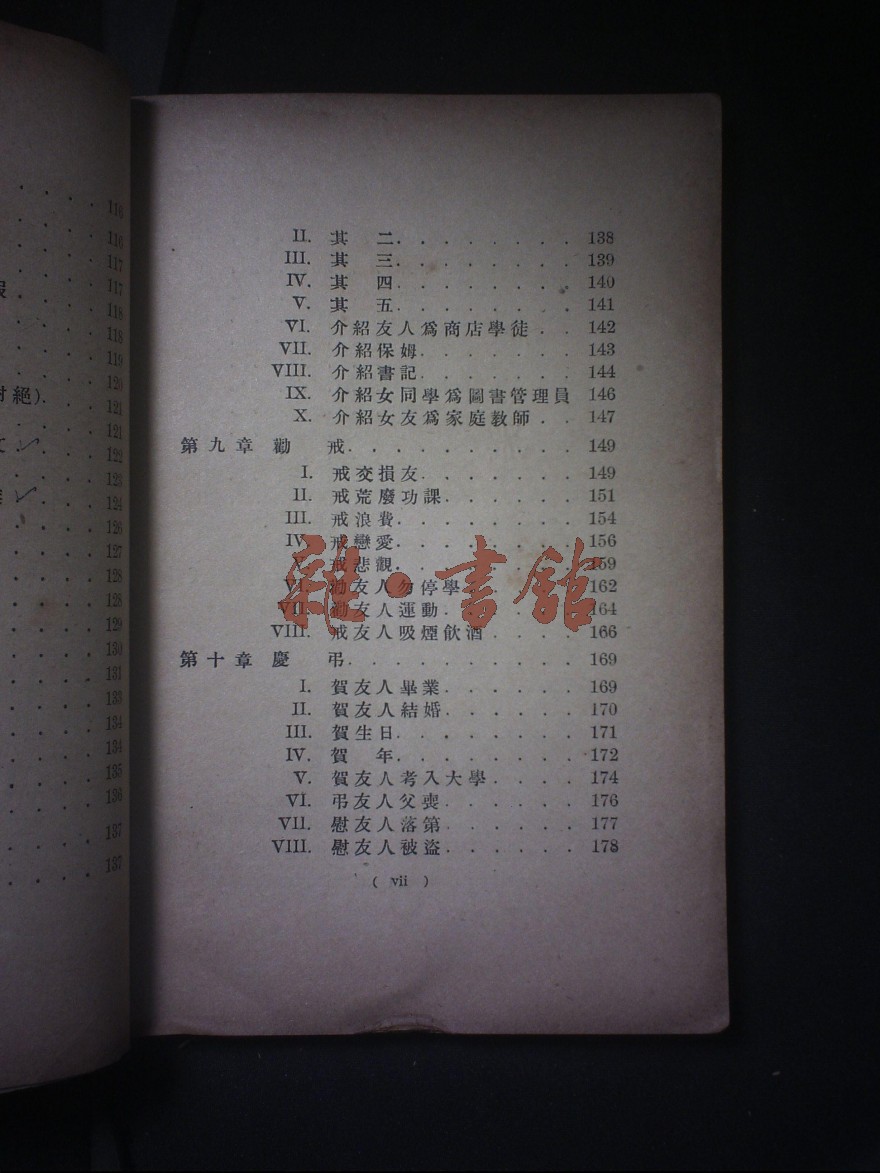 116
116
117
117
118
118
119
120
絕). 121
121
122
123
124
126
127
128
128
129
130
131
133
134
134
135
136
137
137
II. 其 二. . . . . . . . 138
III. 其 三. . . . . . . . 139
IV. 其 四. . . . . . . . 140
V. 其 五. . . . . . . . 141
VI. 介紹友人爲商店學徒 . . 142
VII. 介紹保姆. . . . . . . 143
VIII. 介紹書記. . . . . . . 144
IX. 介紹女同學爲圖書管理員 146
X. 介紹女友爲家庭教師 . . 147
第九章 勸 戒. . . . . . . . . . 149
I. 戒交損友. . . . . . . 149
II. 戒荒廢功課. . . . . . 151
III. 戒浪費. . . . . . . . 154
IV. 戒戀愛. . . . . . . . 156
V. 戒悲觀. . . . . . . . 159
VI. 勸友人勿停學. . . . . 162
VII. 勸友人運動. . . . . . 164
VIII. 戒友人吸煙飲酒 . . . . 166
第十章 慶 弔. . . . . . . . . . 169
I. 賀友人畢業. . . . . . 169
II. 賀友人結婚. . . . . . 170
III. 賀生日. . . . . . . . 171
IV. 賀 年. . . . . . . . 172
V. 賀友人考入大學 . . . . 174
VI. 弔友人父喪. . . . . . 176
VII. 慰友人落第. . . . . . 177
VIII. 慰友人被盜. . . . . . 178
( vii )
雜·書館